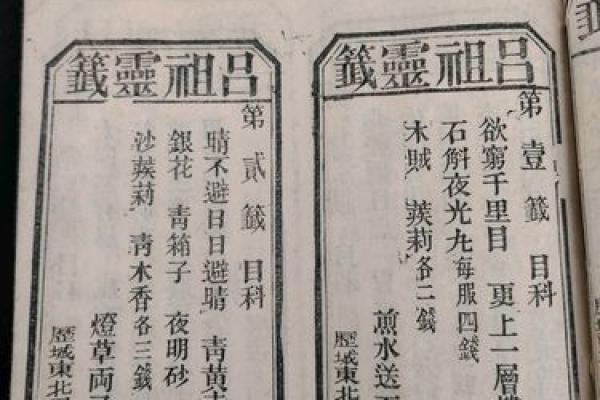 呂祖靈籤
第壹籤 目科
欲窮千里目 更上一層樓
石斛夜光丸每服四錢
木賊 蒺莉各二錢
煎水送
歷城東北
呂祖靈籤
第貳籤 目科
睛不避日日避睛 青黃
銀花 青箱子 夜明砂
沙蒺莉 青木香各三錢
燈草両
歷城東北